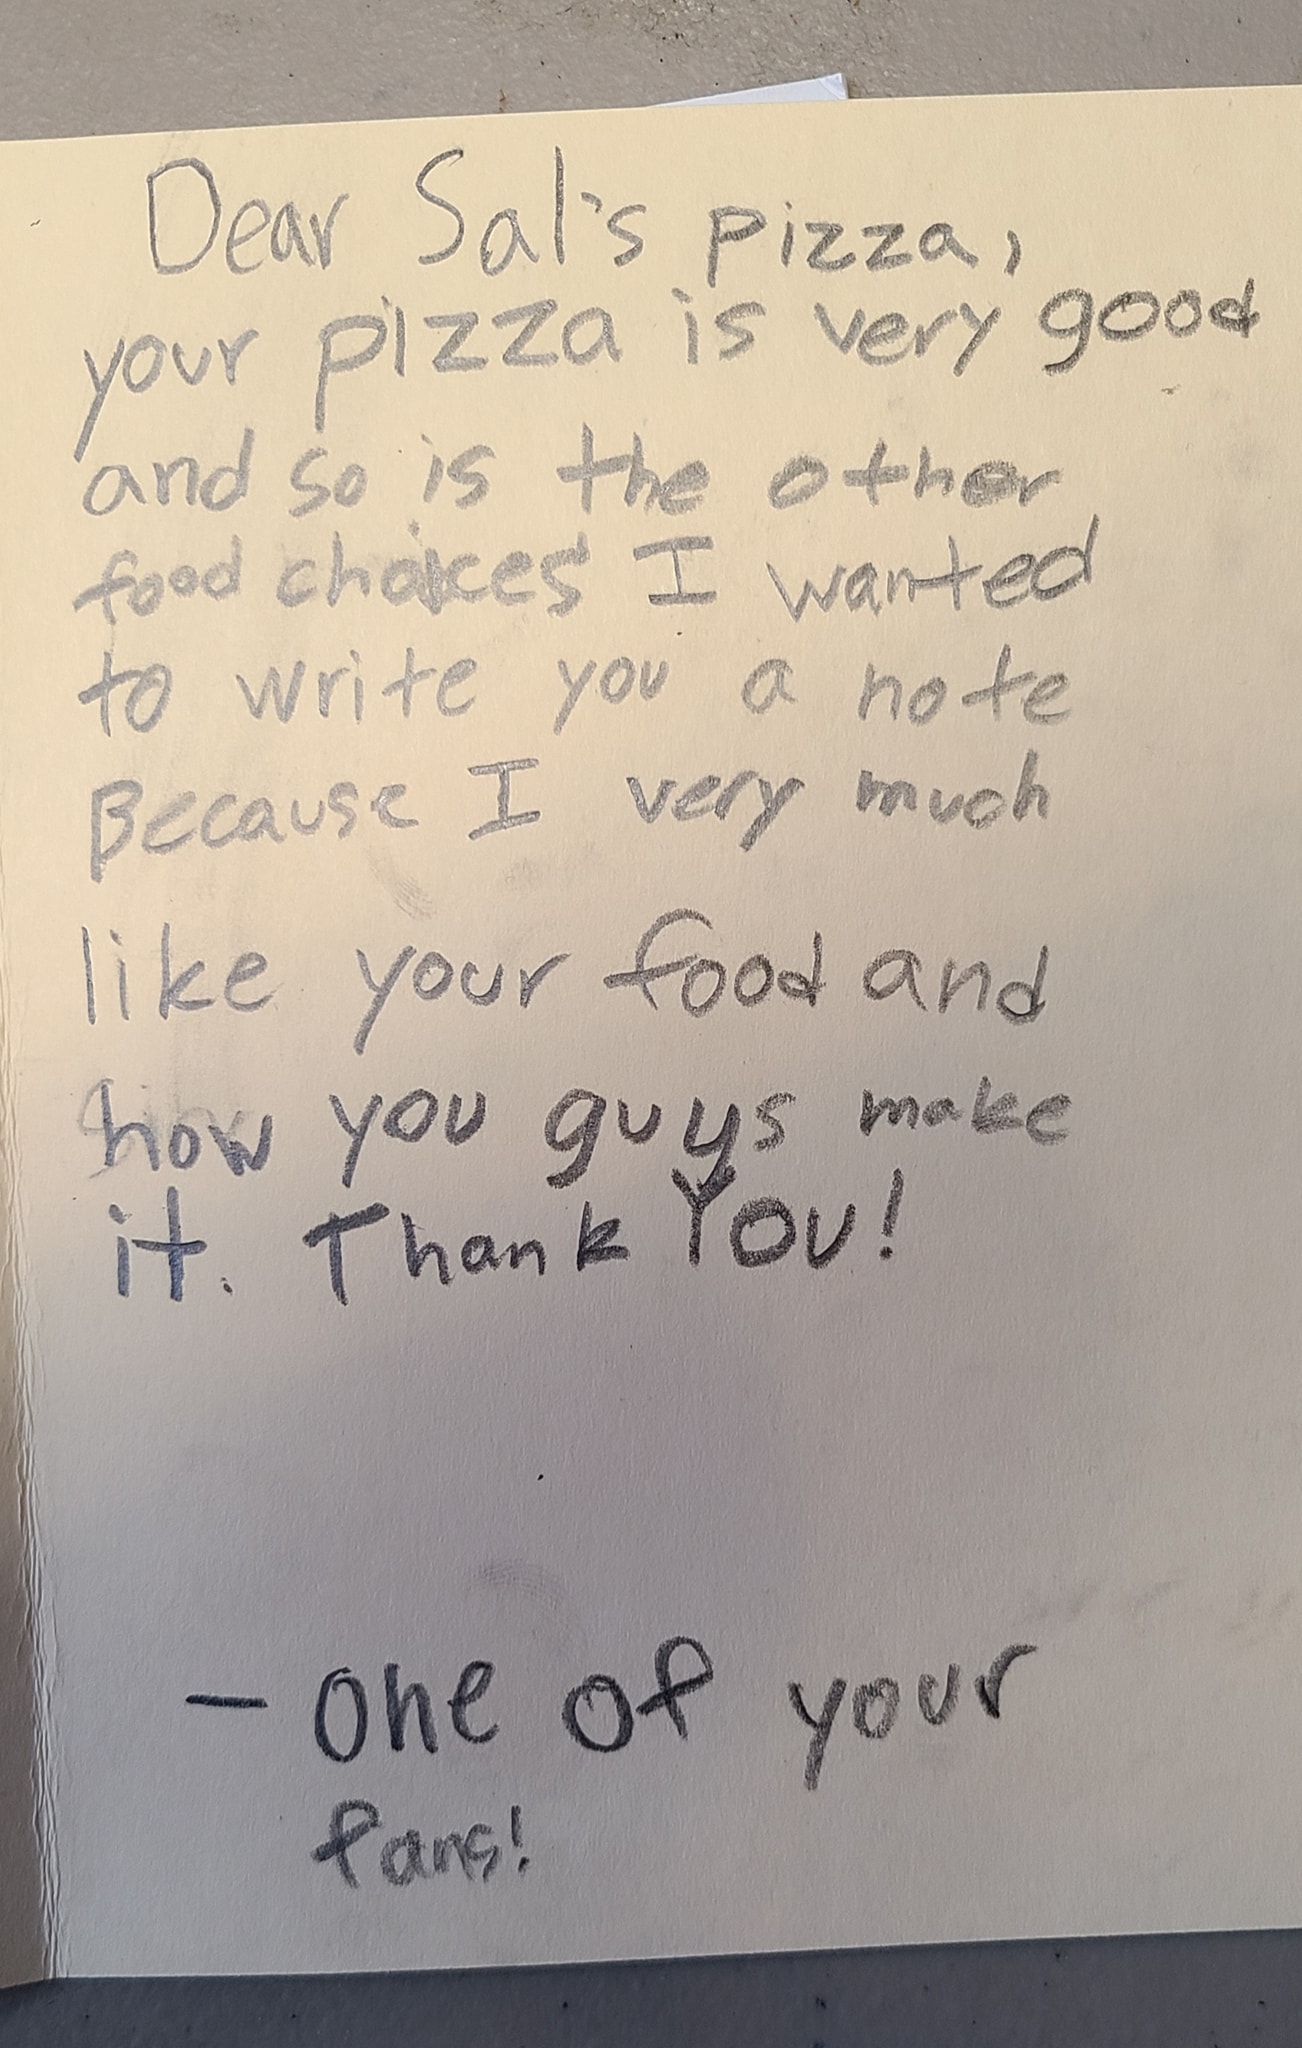 Dear Sal's pizza,
your pizza is very good
and so is the other
food choices I wanted
to write you a note
Because I very much
like your food and
how you guys make
it. Thank YOU!
- One of your
fans!